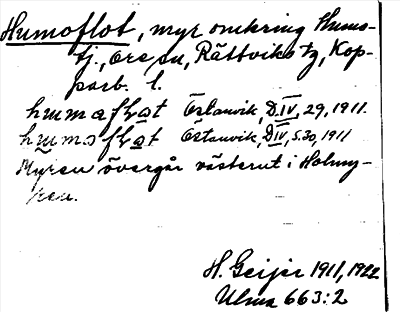 Humoflot, myr omkring Humo-
tj., Ore sn, Rättviks tg, Kop-
parb. l.
Östanvik, D.IV, 29, 1911.
Östanvik, D.IV, s.30, 1911
Myren övergår västerut i Holmy-
ren.
H. Geijer 1911, 1922
Ulma 663:2